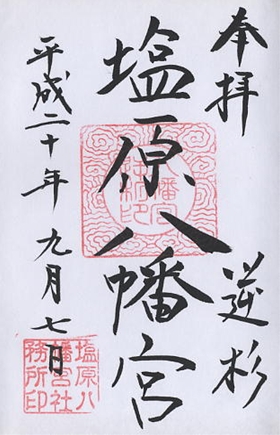 奉拝 逆杉
塩原八幡宮
平成二十年九月七日
塩原八
幡宮社
務所印